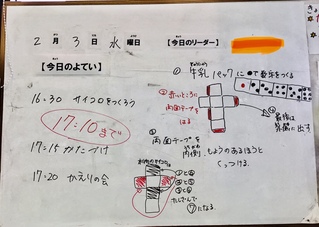 2月3日水曜日 【今日のリーダー】
【今日のよてい】
16:30 サイコロをつくろう
17:10まで
17:15 かたづけ
17:20 かえりの会
① 牛乳パックに●で番号をつくる
② 赤いところに
両面テープを
はる
③ 両面テープを
内側
くっつける。
④ 最後は
①と⑥
②と⑤
③と④
たしざんして
⑦になる。